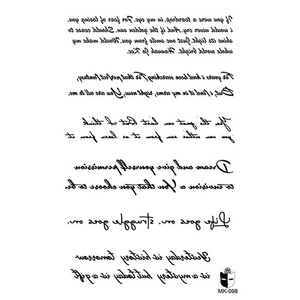 If you were a teardrop, in my eye, For fear of losing you,
i would never cry. And if the golden sun, Should cease to
shine its light, Just one smile from you, Would make my
whole world bright.
For years i had been searching, For that perfect fantasy,
But, i find it in my arms, right now, You are all to me.
Dream and give yourself permission
to envision a You that you choose to be
Life goes on. struggle goes on.
Yesterday is history tomorrow
is a mystery but today is a gift
MK-098